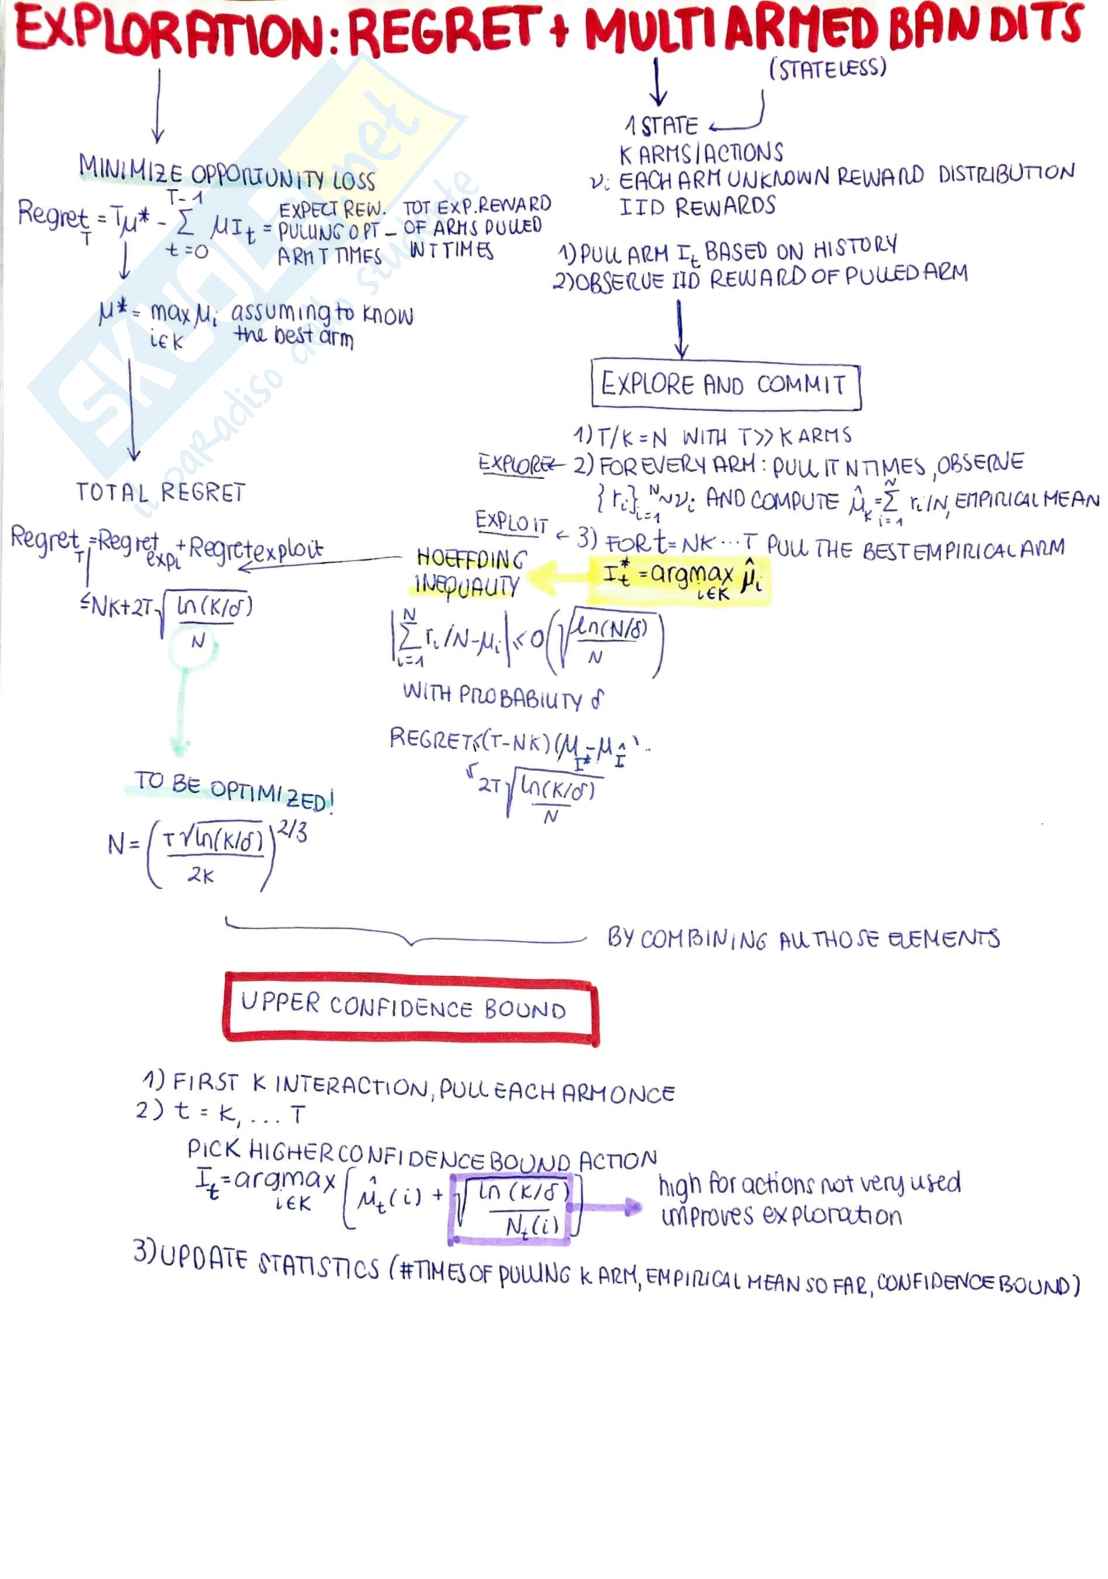 EXPLORATION: REGRET + MULTI ARMED BANDITS
(STATELESS)
MINIMIZE OPPORTUNITY LOSS
Regret_T = Tμ* - Σ_{t=0}^{T-1} μI_t = EXPECT REW. PULLING OPT ARM T TIMES - TOT EXP. REWARD OF ARMS PULLED IN T TIMES
μ* = max_{i∈K} μ_i assuming to know
the best arm
1 STATE
K ARMS/ACTIONS
ν_i: EACH ARM UNKNOWN REWARD DISTRIBUTION
IID REWARDS
1) PULL ARM I_t BASED ON HISTORY
2) OBSERVE IID REWARD OF PULLED ARM
EXPLORE AND COMMIT
1) T/K = N WITH T>> K ARMS
EXPLORE ← 2) FOR EVERY ARM: PULL IT N TIMES, OBSERVE
{r_i}_{i=1}^N ~ ν_i AND COMPUTE μ̂_K = Σ_{i=1}^N r_i/N, EMPIRICAL MEAN
EXPLOIT ← 3) FOR t = NK ... T PULL THE BEST EMPIRICAL ARM
I*_t = argmax_{i∈K} μ̂_i
TOTAL REGRET
Regret_T = Regret_expl + Regret exploit
≤ NK + 2T √(ln(K/δ)/N)
HOEFFDING
INEQUALITY
|Σ_{i=1}^N r_i/N - μ_i| ≤ O(√(ln(N/δ)/N))
WITH PROBABILITY δ
REGRET ≤ (T-NK)(μ_{I*} - μ_Î)
≤ 2T √(ln(K/δ)/N)
TO BE OPTIMIZED!
N = (T√ln(K/δ)/2K)^{2/3}
BY COMBINING ALL THOSE ELEMENTS
UPPER CONFIDENCE BOUND
1) FIRST K INTERACTION, PULL EACH ARM ONCE
2) t = K, ... T
PICK HIGHER CONFIDENCE BOUND ACTION
I_t = argmax_{i∈K} [μ̂_t(i) + √(ln(K/δ)/N_t(i))]
high for actions not very used
improves exploration
3) UPDATE STATISTICS (#TIMES OF PULLING K ARM, EMPIRICAL MEAN SO FAR, CONFIDENCE BOUND)
SKUOLA.net
il paradiso dello studente